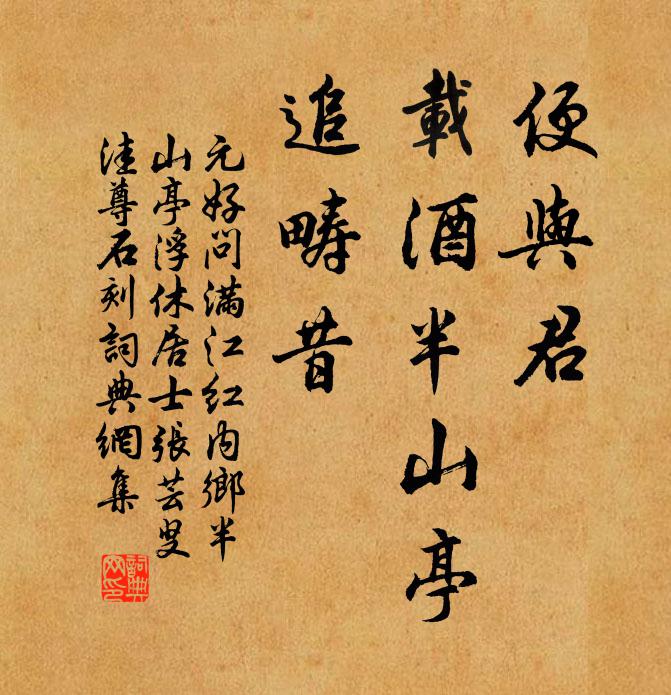 便與君
載酒半山亭
追疇昔
元好問滿江紅內鄉半
山亭浮休居士張芸叟
洼尊石刻詞典網集
詞典
网印